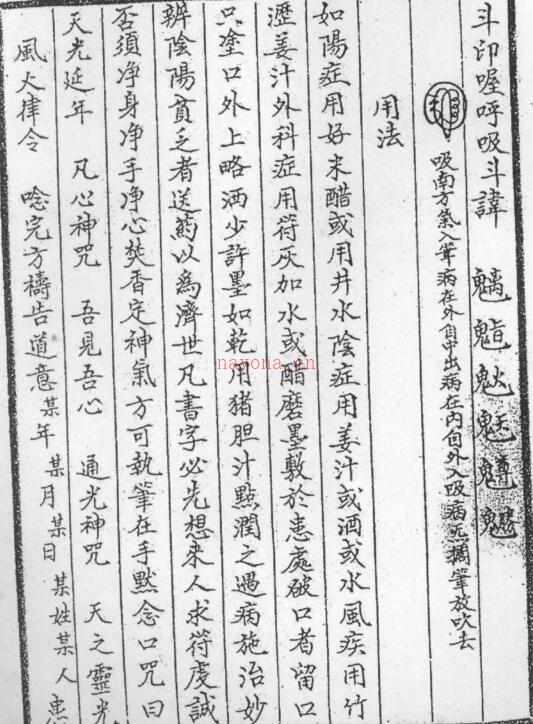 斗印喔呼吸斗諱
吸南方氣入筆病在外自中出病在內自外入吸病完擱筆放吹去
用法
如陽症用好米醋或用井水陰症用姜汁或酒或水風疾用竹
瀝姜汁外科症用符灰加水或酯磨墨敷於患處破口者留口
只塗口外上略洒少許墨如乾用猪胆汁點潤之遇病施治妙
辨陰陽貧乏者送药以為濟世凡書字必先想來人求符虔誠
否須净身净手净心焚香定神氣方可執筆在手默念口咒曰
天光延年 凡心神咒 吾見吾心 通光神咒 天之靈光
風火律令 唸完方禱告道意某年某月某日某姓某人患
nayona.cn